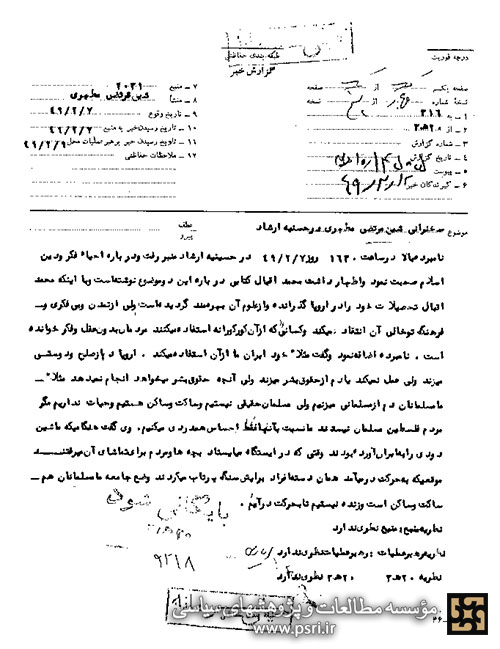 درجه فوریت
طبقه بندی حفاظتی
گزارش خبر
صفحه یکم از صفحه
نسخه شماره از نسخه
۱ ـ به ۳۱۶
۲ ـ از ۲۰ه۲
۳ ـ شماره گزارش
۴ ـ تاریخ گزارش
۵ ـ پیوست
۶ ـ گیرندگان خبر
۷ ـ منبع ۲۰۳۱
۸ ـ منشأ شیخ مرتضی مطهری
۹ ـ تاریخ وقوع ۴۹/۲/۷
۱۰ ـ تاریخ رسیدن خبر به منبع ۴۹/۲/۷
۱۱ ـ تاریخ رسیدن خبر برهبر عملیات محل ۴۹/۲/۹
۱۲ ـ ملاحظات حفاظتی
موضوع سخنرانی شیخ مرتضی مطهری در حسینیه ارشاد
عطف
پیرو
نامبرده بالا در ساعت ۱۶۳۰ روز ۴۹/۲/۷ در حسینیه ارشاد منبر رفت و درباره احیاء فکر دین
اسلام صحبت نمود و اظهار داشت محمد اقبال کتابی درباره این دو موضوع نوشته است و با اینکه محمد
اقبال تحصیلات خود را در اروپا گذرانده و از علوم آن بهره مند گردیده است ولی از تمدن و بی فکری و بی
فرهنگ تو خالی آن انتقاد میکند و کسانی که از آن کورکورانه استفاده میکنند مردمان بدون عقل و فکر خوانده
است . نامبرده اضافه نمود و گفت مثلا" خود ایران ما از آن استفاده میکند . اروپا دم از صلح و دوستی
میزند ولی عمل نمیکند یا دم از حقوق بشر میزند ولی آنچه حقوق بشر میخواهد انجام نمیدهد مثلا" ـ
ما مسلمانان دم از مسلمانی میزنیم ولی مسلمان حقیقی نیستیم و ساکت و ساکن هستیم و حیات نداریم مگر
مردم فلسطین مسلمان نیستند ما نسبت بآنها فقط احساس همدردی میکنیم. وی گفت هنگامیکه ماشین
دودی را به ایران آورده بودند وقتی که در ایستگاه میایستاد بچه ها و مردم برای تماشای آن میرفتند
موقعیکه به حرکت در میآمد همان دسته افراد برایش سنگ پرتاب میکردند وضع جامعه ما مسلمانان هم ـ
ساکت و ساکن است و زنده نیستیم تا بحرکت درآئیم .
نظریه منبع : منبع نظری ندارد
نظریه رهبر عملیات : رهبر عملیات نظری ندارد
نظریه ۲۰ه۳ ۲۰ه۳ نظری ندارد
بایگانی شود
۹۲۱۸
مؤسسه مطالعات و پژوهشهای سیاسی
www.psri.ir